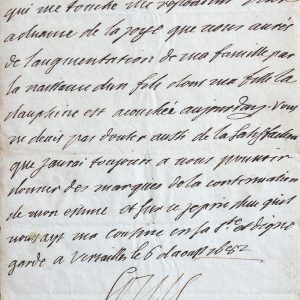 qui me touche me
aduance de la joye que vous aurés
de l'augmentation de ma famille par
la naissance d'un fils dont ma fille la
dauphine est acouchée aujourdhuy. Vous
ne deués pas douter aussi de la satisfaction
que j'aurai toujours a vous pouvoir
donner des marques de la continuation
de mon estime et sur ce je prie dieu quil
vous ayt ma cousine en sa ste et digne
garde a Versailles le 6 d'aoust 1682
Louis